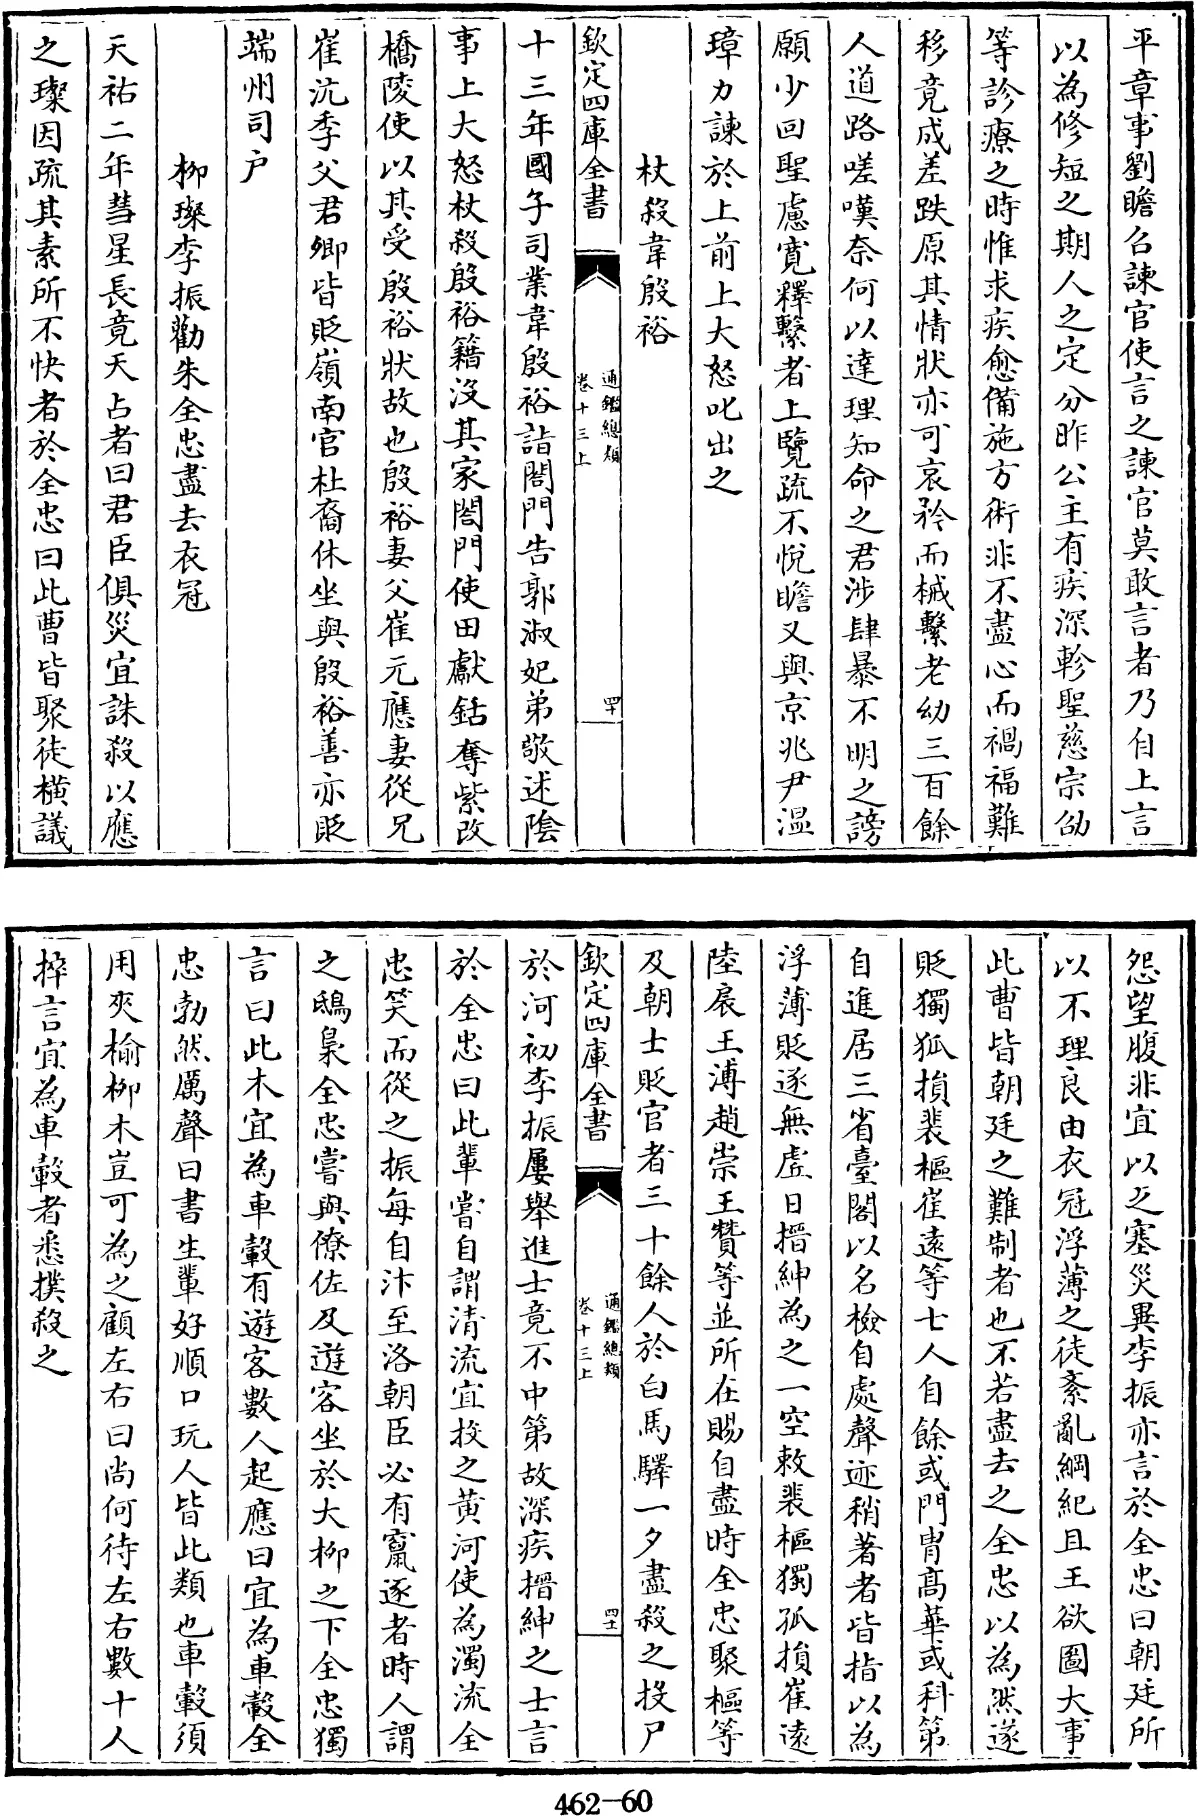 平章事劉瞻召諫官使言之諫官莫敢言者乃自上言
以為修短之期人之定分昨公主有疾深軫聖慈宗劭
等診療之時惟求疾愈備施方術非不盡心而禍福難
移竟成差跌原其情狀亦可哀矜而械繫老幼三百餘
人道路嗟嘆奈何以達理知命之君涉肆暴不明之謗
願少回聖慮寛釋繫者上覽疏不悅瞻又與京兆尹温
璋力諫於上前上大怒叱出之
杖殺韋殷裕
欽定四庫全書
通鑑總類
卷十三上
四十
十三年國子司業韋殷裕詣閤門告郭淑妃弟敬述陰
事上大怒杖殺殷裕籍沒其家閤門使田獻銛奪紫改
橋陵使以其受殷裕狀故也殷裕妻父崔元應妻從兄
崔沆季父君卿皆貶嶺南官杜裔休坐與殷裕善亦貶
端州司户
柳璨李振勸朱全忠盡去衣冠
天祐二年彗星長竟天占者曰君臣俱災宜誅殺以應
之璨因疏其素所不快者於全忠曰此曹皆聚徒橫議
怨望腹非宜以之塞災異李振亦言於全忠曰朝廷所
以不理良由衣冠浮薄之徒紊亂綱紀且王欲圖大事
此曹皆朝廷之難制者也不若盡去之全忠以為然遂
貶獨孤損裴樞崔遠等七人自餘或門胄髙華或科第
自進居三省臺閣以名檢自處聲迹稍著者皆指以為
浮薄貶逐無虚日搢紳為之一空敕裴樞獨孤損崔遠
陸扆王溥趙崇王贊等並所在賜自盡時全忠聚樞等
及朝士貶官者三十餘人於白馬驛一夕盡殺之投尸
欽定四庫全書
通鑑總類
卷十三上
四十一
於河初李振屢舉進士竟不中第故深疾搢紳之士言
於全忠曰此輩嘗自謂清流宜投之黄河使為濁流全
忠笑而從之振每自汴至洛朝臣必有竄逐者時人謂
之鴟梟全忠嘗與僚佐及遊客坐於大柳之下全忠獨
言曰此木宜為車轂有遊客數人起應曰宜為車轂全
忠勃然厲聲曰書生輩好順口玩人皆此類也車轂須
用夾榆柳木豈可為之顧左右曰尚何待左右數十人
捽言宜為車轂者悉撲殺之
462-60